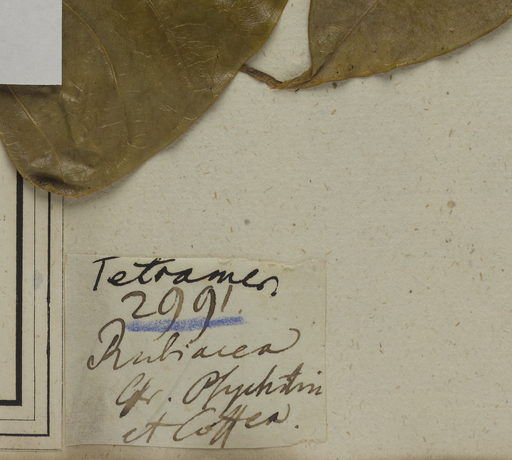 Tetramer.
2991.
Rubiacea
Gr. Psychotrin
et Coffea.